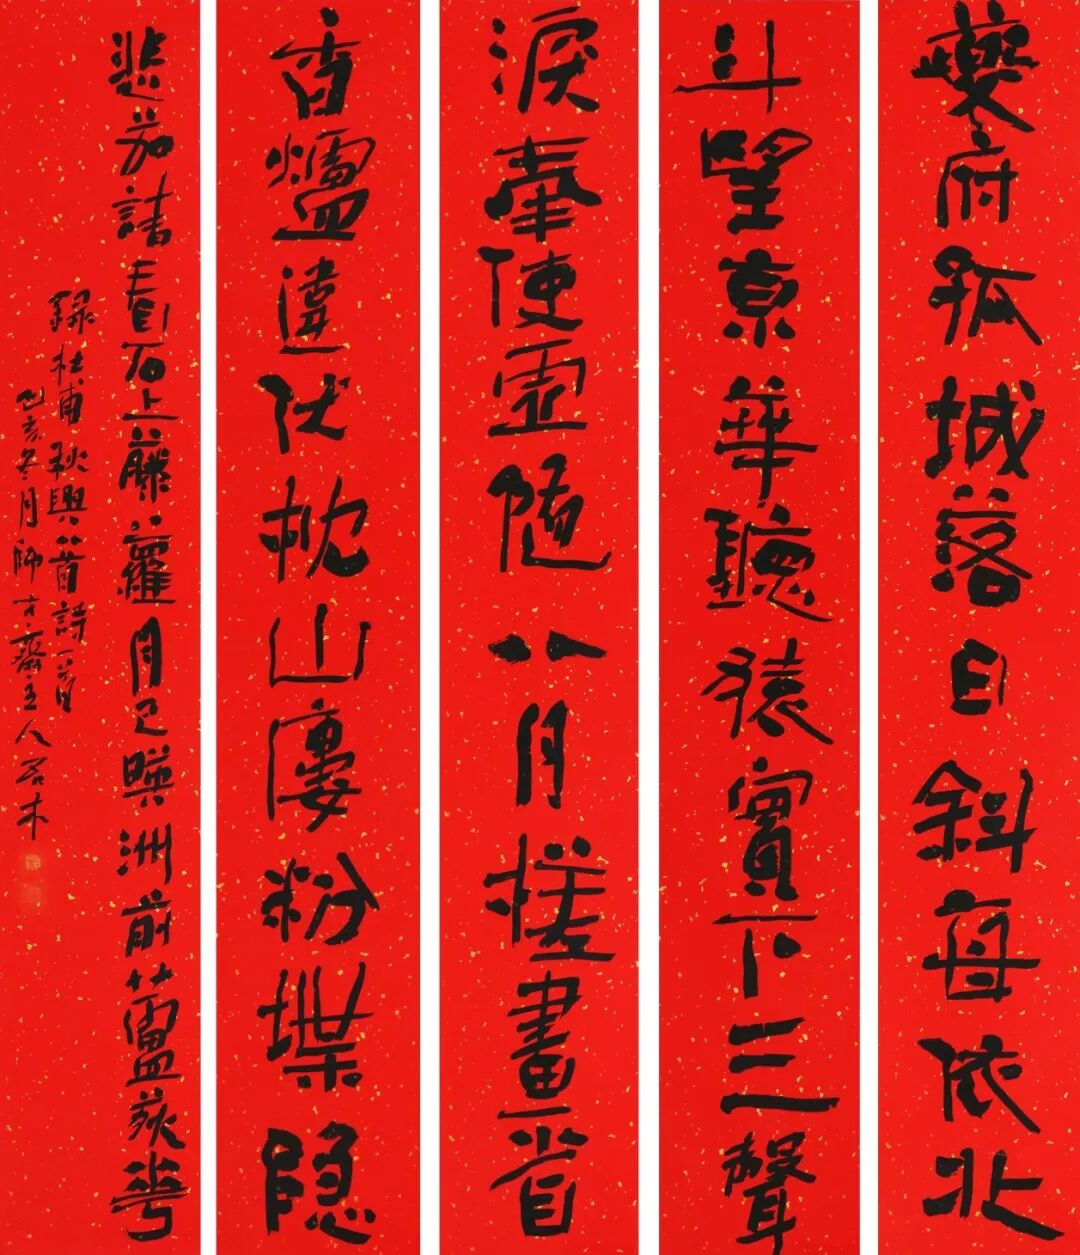 夔府孤城落日斜每依北
斗望京華聽猿實下三聲
淚奉使虛隨八月槎畫省
香爐違伏枕山廔粉堞隐
悲笳請看石上藤蘿月已暎洲前蘆荻花
録杜甫秋興八首詩一首
己亥冬月師古齋主人若木